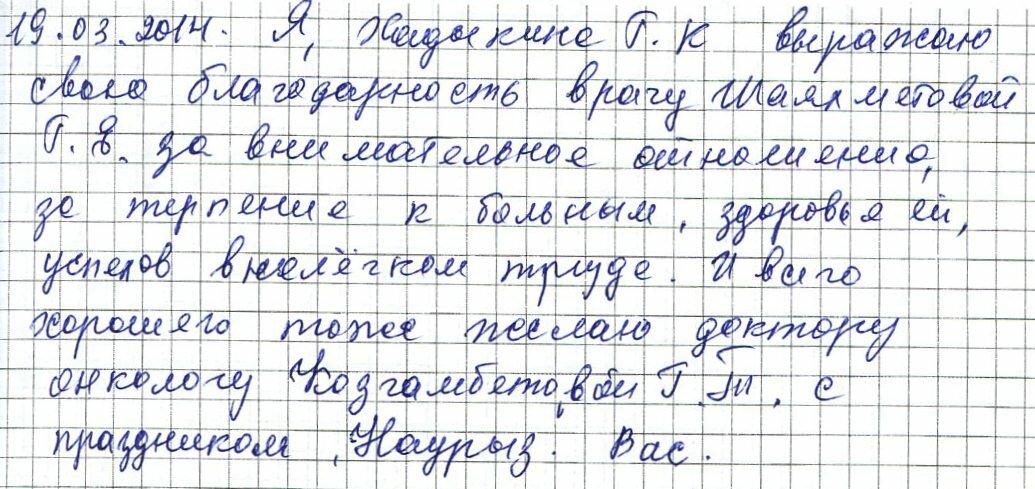 19.03.2014. Я, Хадыкина Г.К выражаю
свою благодарность врачу Шаяхметовой
Г.Я. за внимательное отношение,
за терпение к больным, здоровья ей,
успехов в нелёгком труде. И всего
хорошего тоже желаю доктору
онкологу Козгамбетовой Г.Т. с
праздником, Наурыз. Вас.